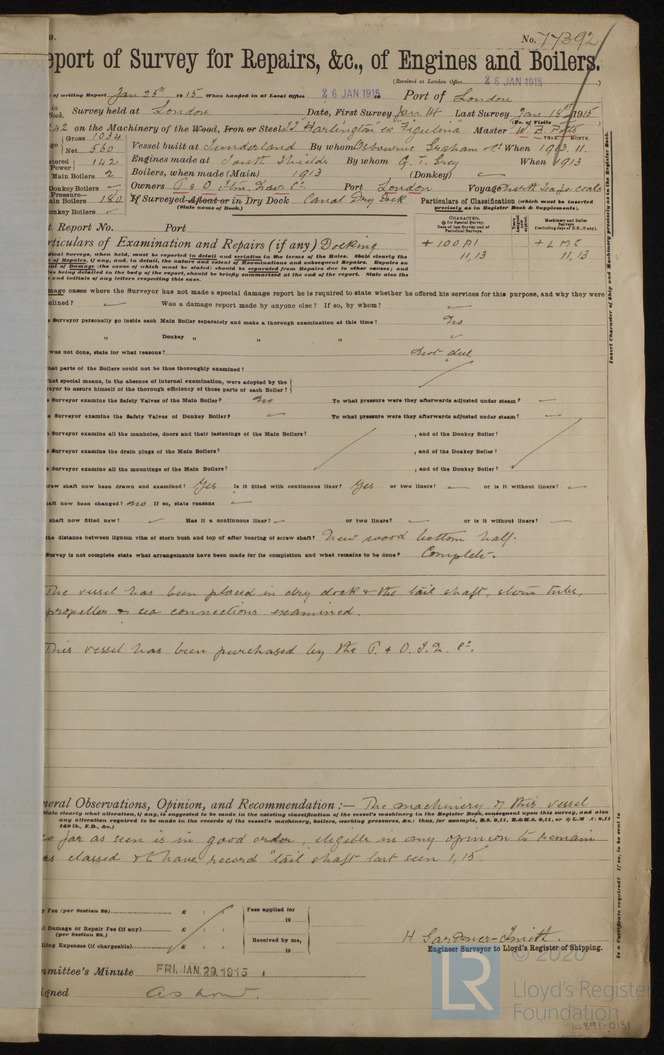 9.
No. 77392
eport of Survey for Repairs, &c., of Engines and Boilers.
(Received at London Office 26 JAN 1915)
of writing Report Jan 25th 1915 When handed in at Local Office 26 JAN 1915 Port of London
Survey held at London Date, First Survey Jan 14 Last Survey Jan 18th 1915
(No. of Visits
on the Machinery of the Wood, Iron or Steel S.S. Harlington ex Figulina Master W. B. Potts
Gross 1034
Net 560
Vessel built at Sunderland By whom Osbourne Graham & Co. When 1913. 11.
142 Engines made at South Shields By whom G. T. Grey When 1913
Main Boilers 2 Boilers, when made (Main) 1913 (Donkey) —
Donkey Boilers Owners P. & O. Stm. Nav. Co. Port London Voyage
ain Boilers 180 If Surveyed Afloat or in Dry Dock Canal Dry Dock
(State name of Dock.)
Donkey Boilers
Particulars of Classification (which must be inserted
precisely as in Register Book & Supplements).
t Report No. Port
rticulars of Examination and Repairs (if any) Docking
+ 100 A1
11,13
+ L M C
11,13
mage cases where the Surveyor has not made a special damage report he is required to state whether he offered his services for this purpose, and why they were
clined? Was a damage report made by anyone else? If so, by whom?
e Surveyor personally go inside each Main Boiler separately and make a thorough examination at this time? No
" Donkey " "
was not done, state for what reasons? Not due
hat parts of the Boilers could not be thus thoroughly examined?
hat special means, in the absence of internal examination, were adopted by the
veyor to assure himself of the thorough efficiency of those parts of each Boiler?
e Surveyor examine the Safety Valves of the Main Boiler? No To what pressure were they afterwards adjusted under steam? —
e Surveyor examine the Safety Valves of Donkey Boiler? To what pressure were they afterwards adjusted under steam? —
e Surveyor examine all the manholes, doors and their fastenings of the Main Boilers? , and of the Donkey Boiler?
e Surveyor examine the drain plugs of the Main Boilers? , and of the Donkey Boiler?
e Surveyor examine all the mountings of the Main Boilers? , and of the Donkey Boiler?
crew shaft now been drawn and examined? Yes Is it fitted with continuous liner? Yes or two liners? — or is it without liners? —
haft now been changed? No If so, state reasons —
shaft now fitted new? Has it a continuous liner? or two liners? or is it without liners? —
the distance between lignum vitæ of stern bush and top of after bearing of screw shaft? New wood bottom half.
Survey is not complete state what arrangements have been made for its completion and what remains to be done? Complete.
The vessel has been placed in dry dock & the tail shaft, stern tube,
propeller & sea connections examined.
This vessel has been purchased by the P. & O. S. N. Co.
neral Observations, Opinion, and Recommendation:— The machinery of this vessel
(State clearly what alteration, if any, is suggested to be made in the existing classification of the vessel's machinery in the Register Book, consequent upon this survey, and also
any alteration required to be made in the records of the vessel's machinery, boilers, working pressures, &c.; thus, for example, B.S. 9,11, B.&M.S. 9,11, or + L.M.C. 9,11
so far as seen is in good order, eligible in my opinion to remain
as classed & to have record "tail shaft last seen 1,15.
y Fee (per Section 28) £ : : Fees applied for
19
l Damage or Repair Fee (if any) £ : :
(per Section 28.)
Received by me,
lling Expenses (if chargeable) £ : : 19
H Gardner-Smith.
Engineer Surveyor to Lloyd's Register of Shipping.
mmittee's Minute FRI. JAN. 29. 1915
signed As now.
Insert Character of Ship and Machinery precisely as in the Register Book.
Is a Certificate required? If so, to be sent to
© 2020
LR
Lloyd's Register
Foundation
W891-0131